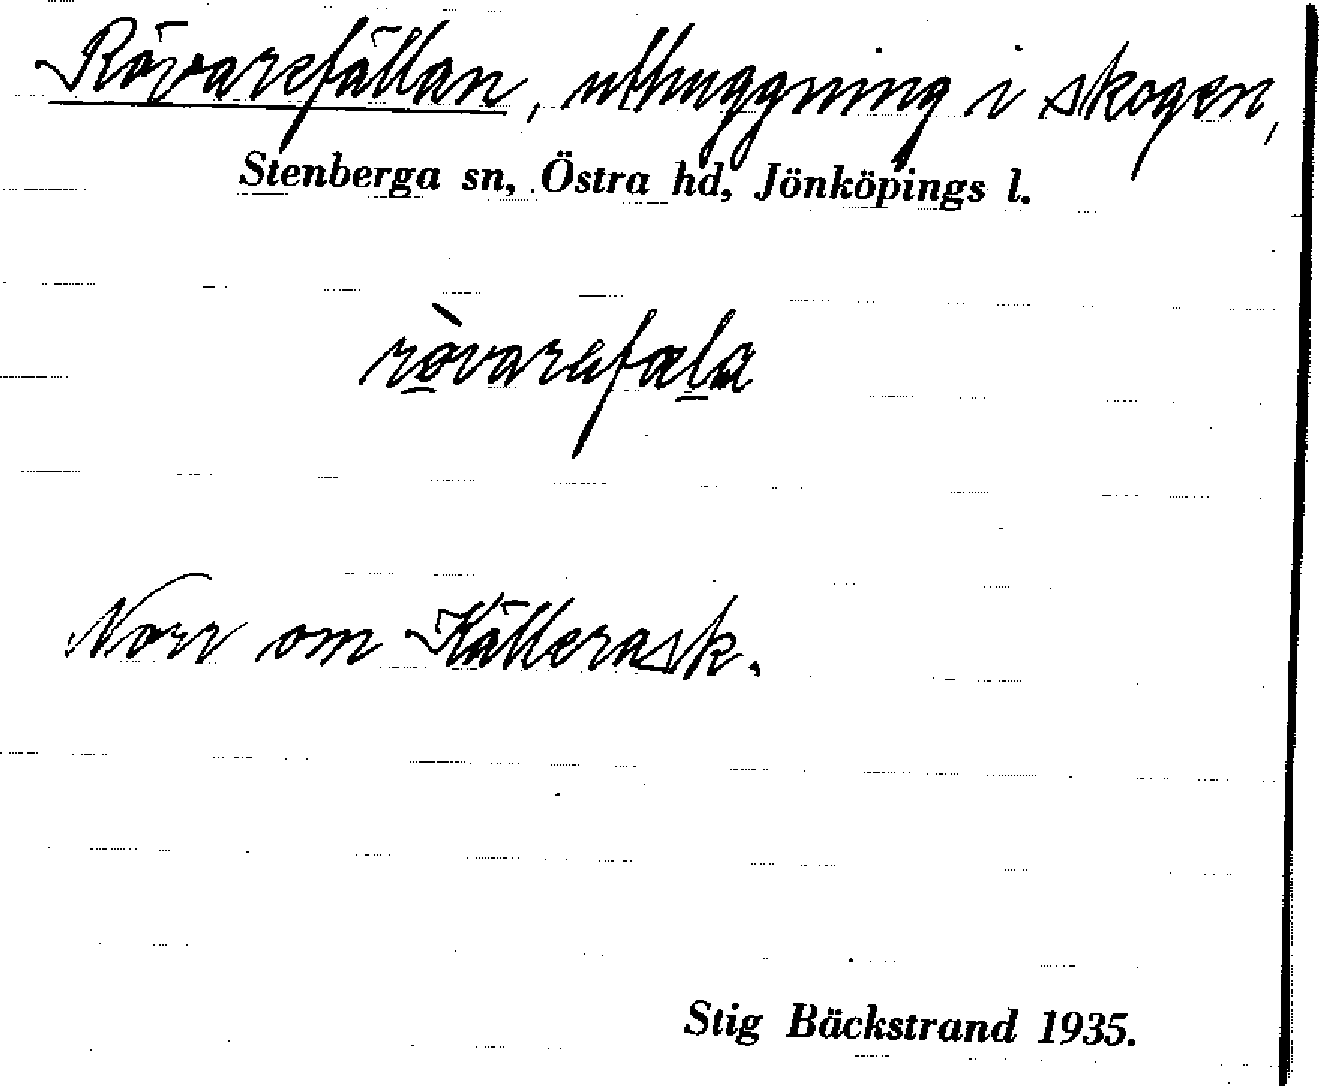 Rövarefällan, uthuggning i skogen,
Stenberga sn, Östra hd, Jönköpings l.
rò̱varefæḻa
Norr om Källerask.
Stig Bäckstrand 1935.